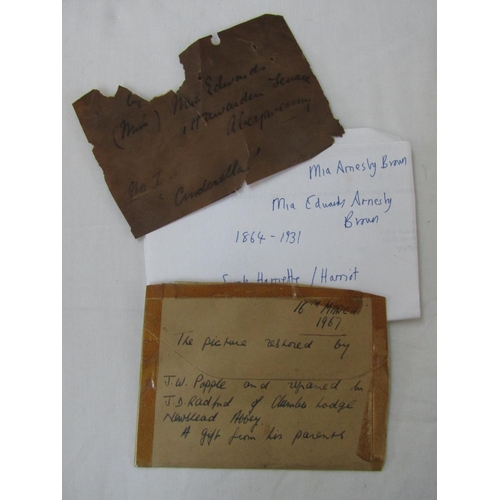 by
(Miss) Mia Edwards
1 Hawarden Terrace
Abergavenny
No I
"Cinderella"
Mia Arnesby Brown
Mia Edwards Arnesby
Brown
1864 - 1931
Harriette / Harriot
16th March
1967
The picture restored by
J.W. Popple and repaired by
J.D. Radford of Clumber Lodge
Newstead Abbey.
A gift from his parents